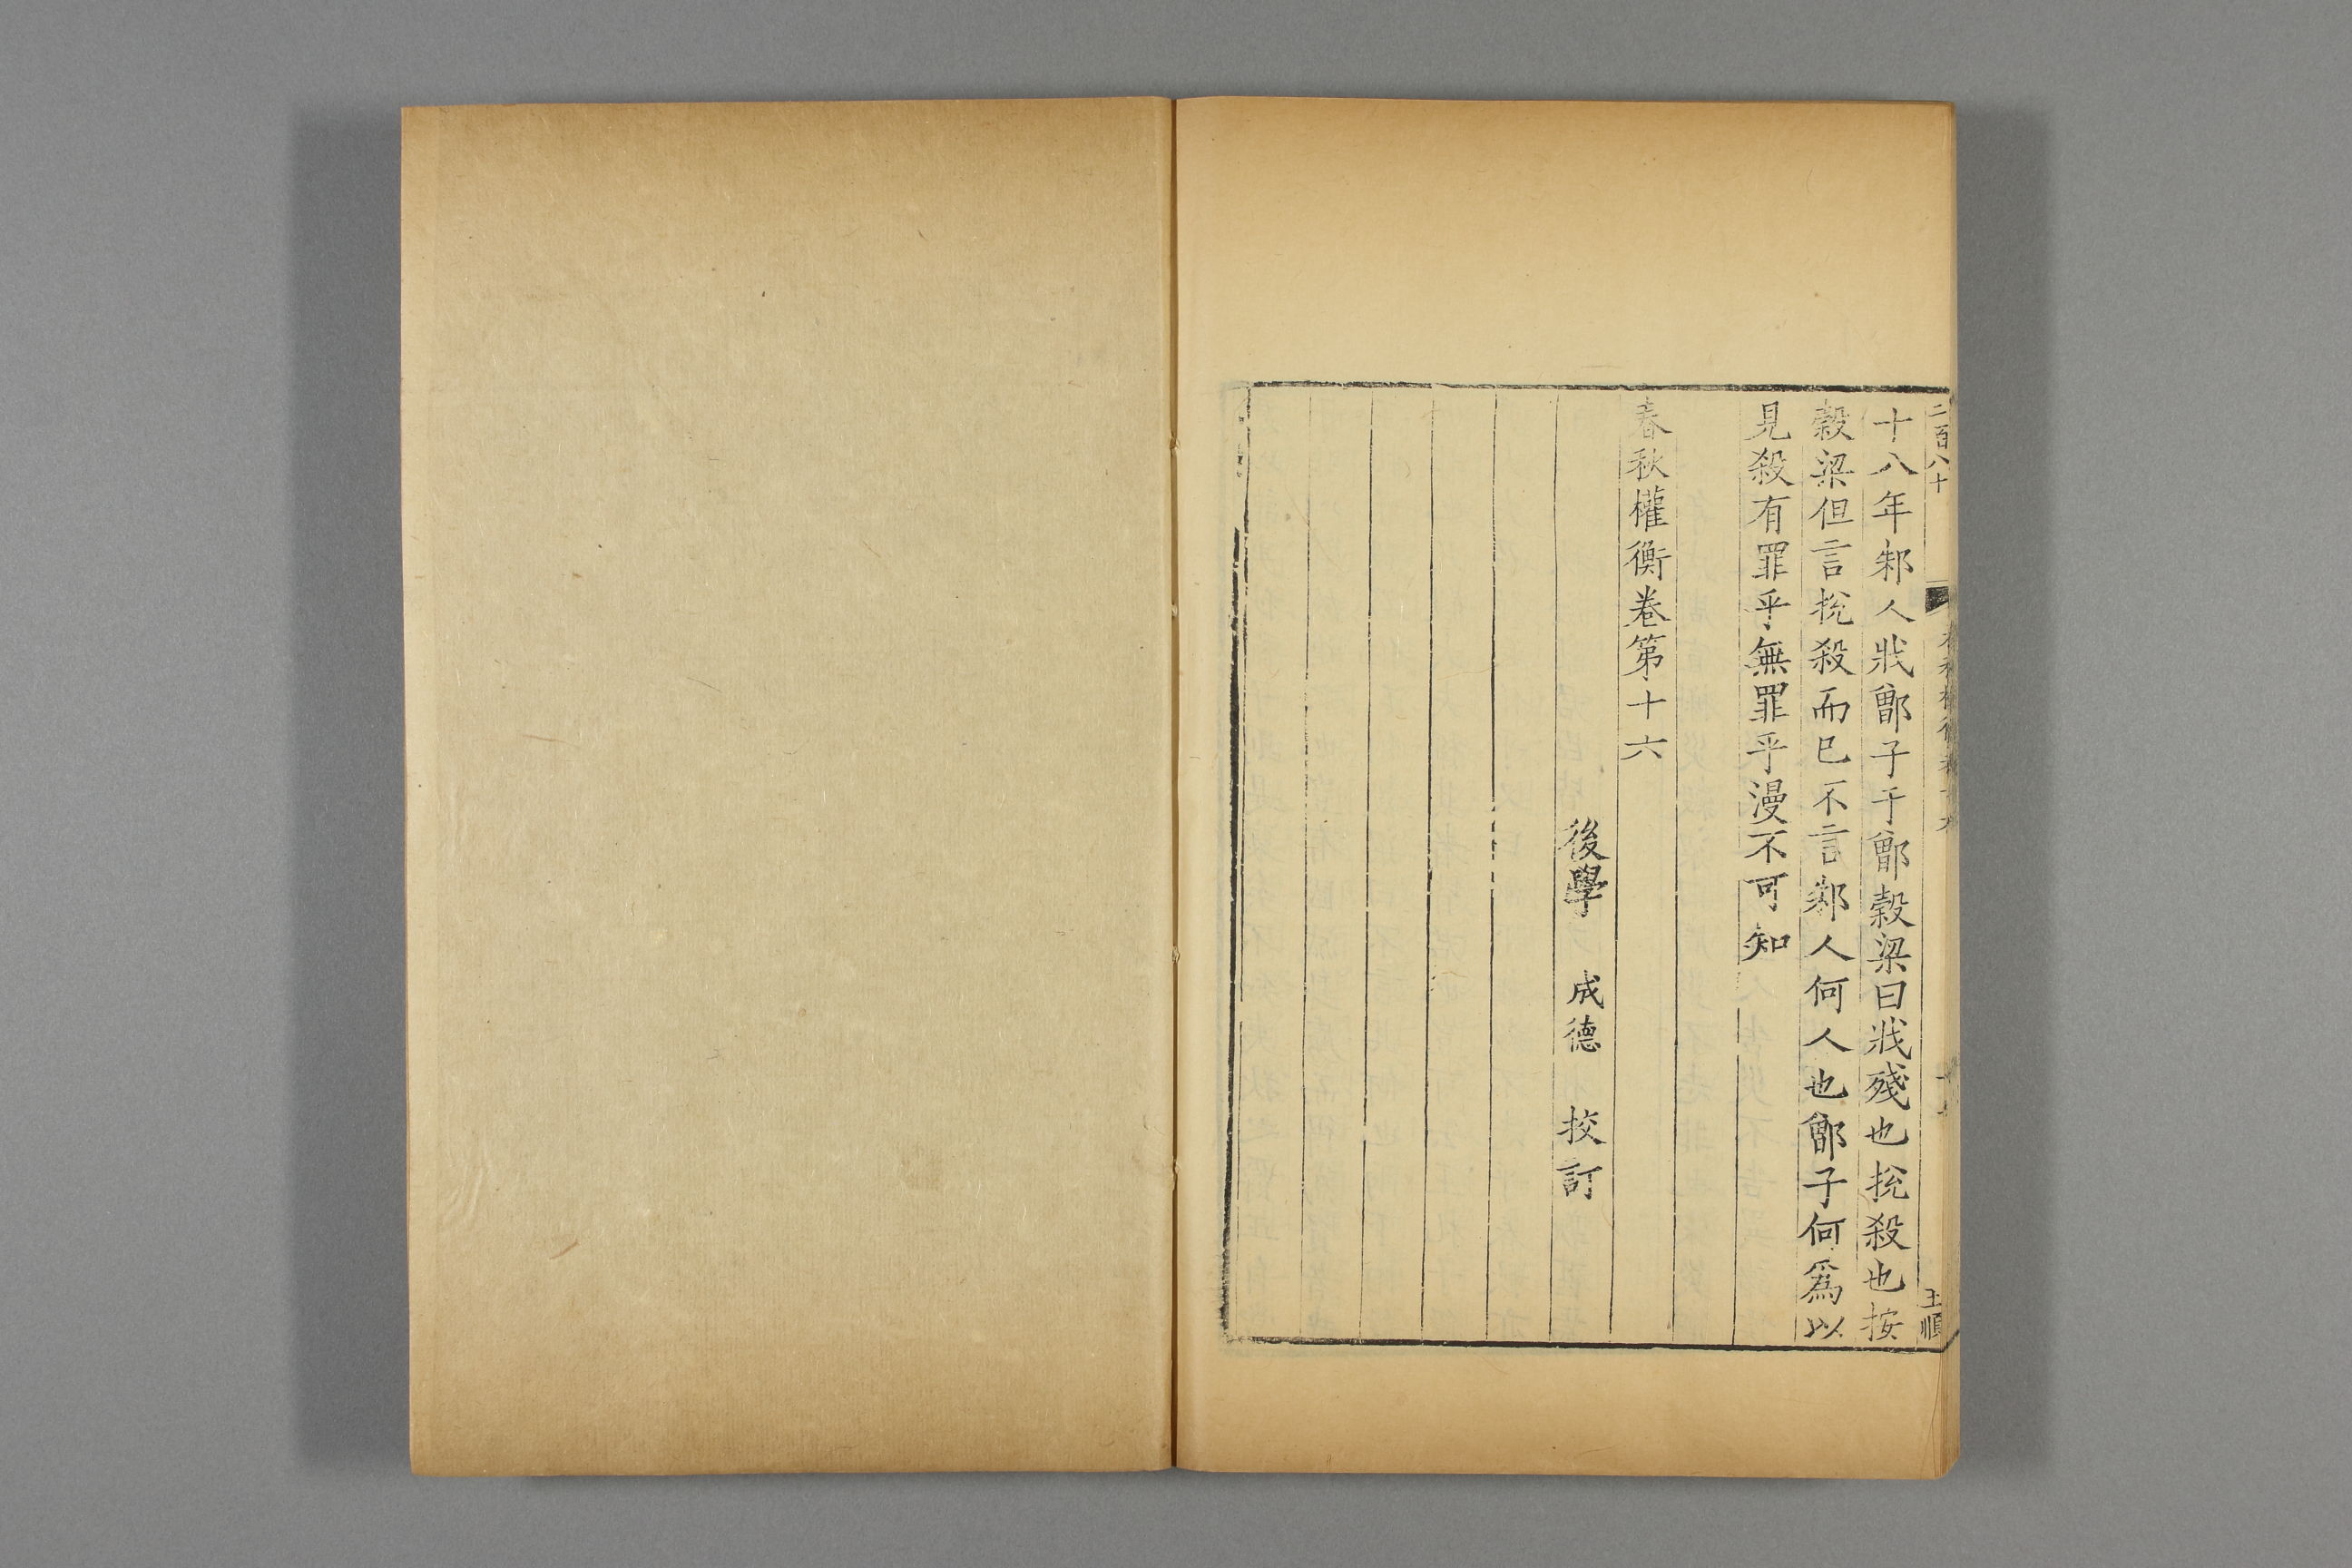 二百八十
王順
十八年邾人戕鄫子于鄫穀梁曰戕殘也挩殺也按
穀梁但言挩殺而已不言邾人何人也鄫子何爲以
見殺有罪乎無罪乎漫不可知
春秋權衡卷第十六
後學　成德　挍訂